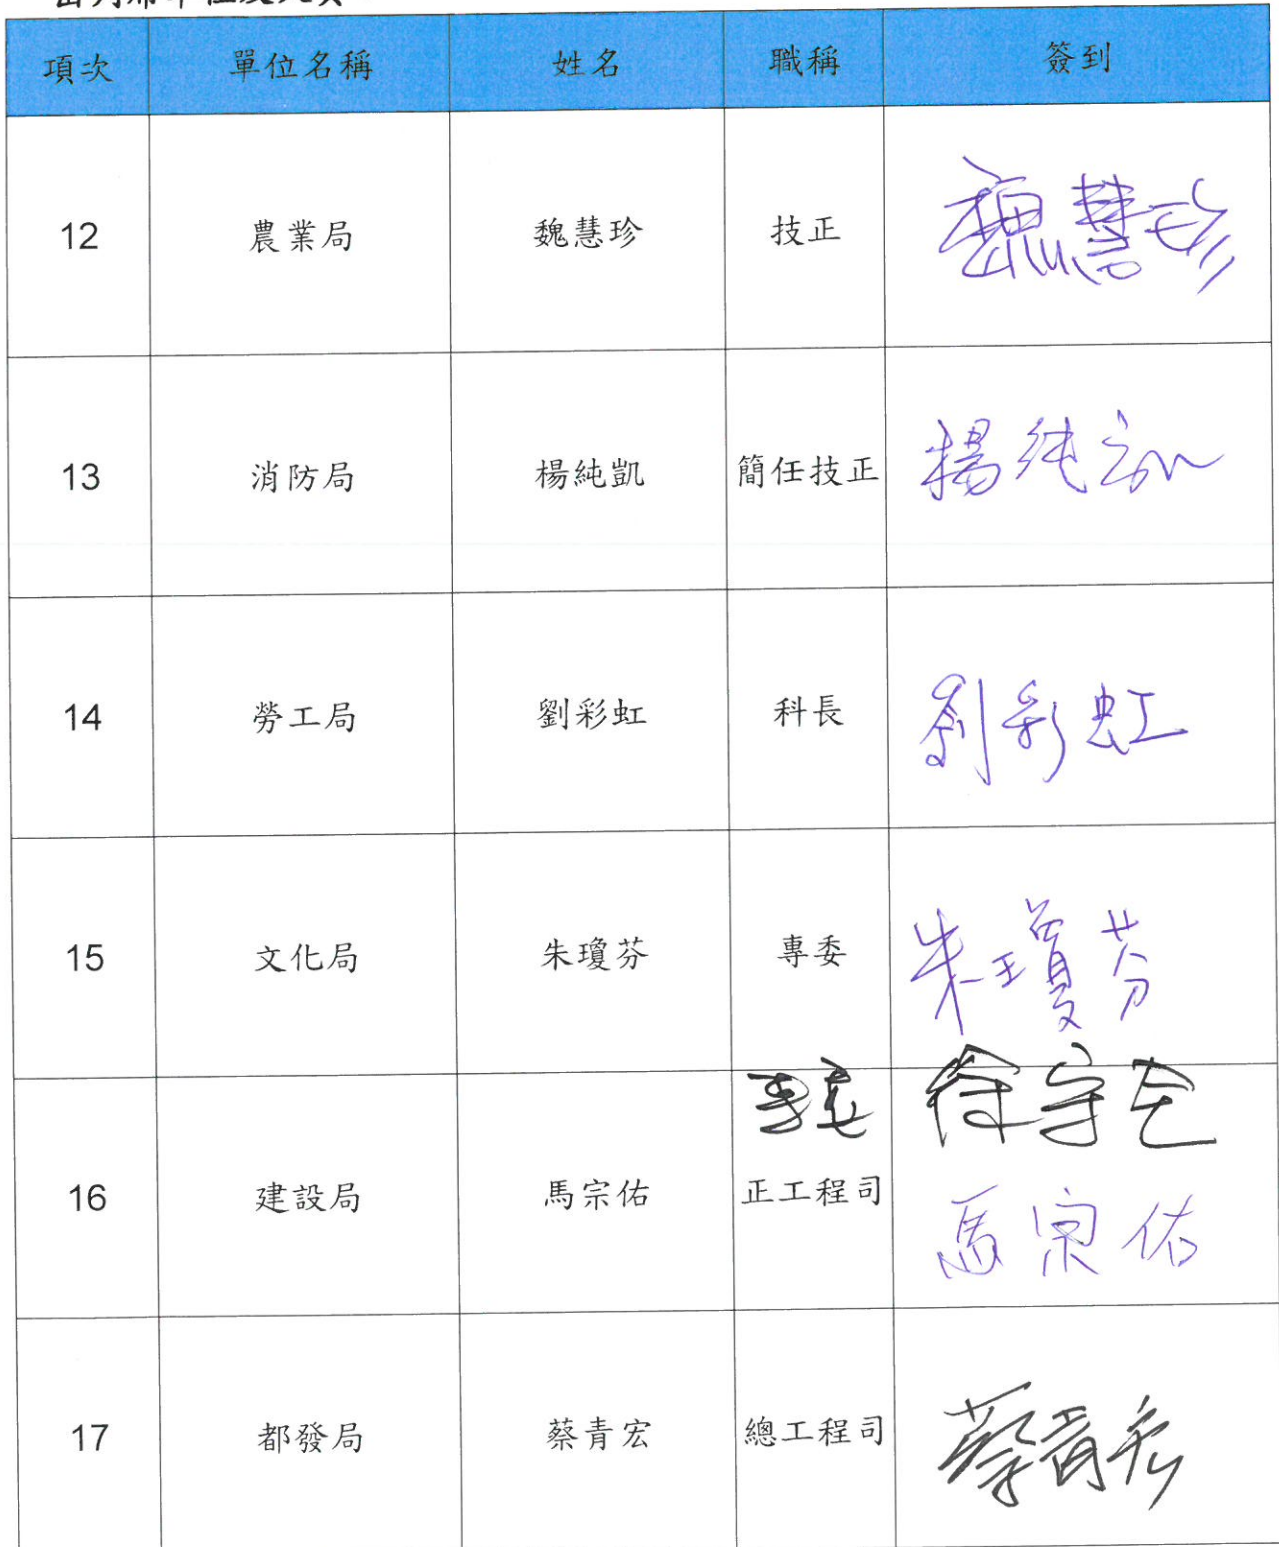 出列席單位及人員
項次 單位名稱 姓名 職稱 簽到
12 農業局 魏慧珍 技正 魏慧珍
13 消防局 楊純凱 簡任技正 楊純凱
14 勞工局 劉彩虹 科長 劉彩虹
15 文化局 朱瓊芬 專委 朱瓊芬
專委
16 建設局 馬宗佑 正工程司 馬宗佑
17 都發局 蔡青宏 總工程司 蔡青宏